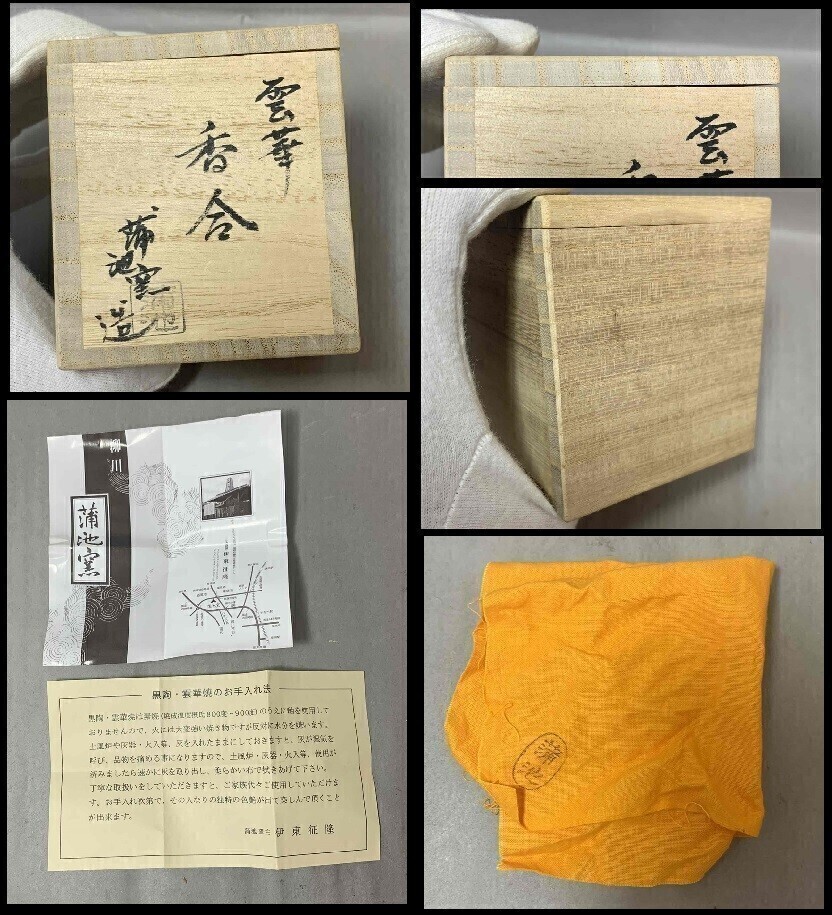 雲華
香合
蒲池窯
造
雲華
柳川
蒲池窯
黒陶・雲華焼のお手入れ法
黒陶・雲華焼は素焼(焼成温度摂氏800度~900度)のうえに釉を使用して
おりませんので、火には大変強い焼き物ですが反対に水分を嫌います。
土風炉や灰器・火入等、灰を入れたままにしておきますと、灰が湿気を
呼び、品物を痛める事になりますので、土風炉・灰器・火入等、使用が
済みましたら速かに灰を取り出し、柔らかい布で拭きあげて下さい。
丁寧な取扱いをしていただきますと、ご家族代々ご使用していただけま
す。お手入れ次第で、その人なりの独特の色艶が出て楽しんで頂くこと
が出来ます。
蒲池窯主 伊東征隆
蒲池